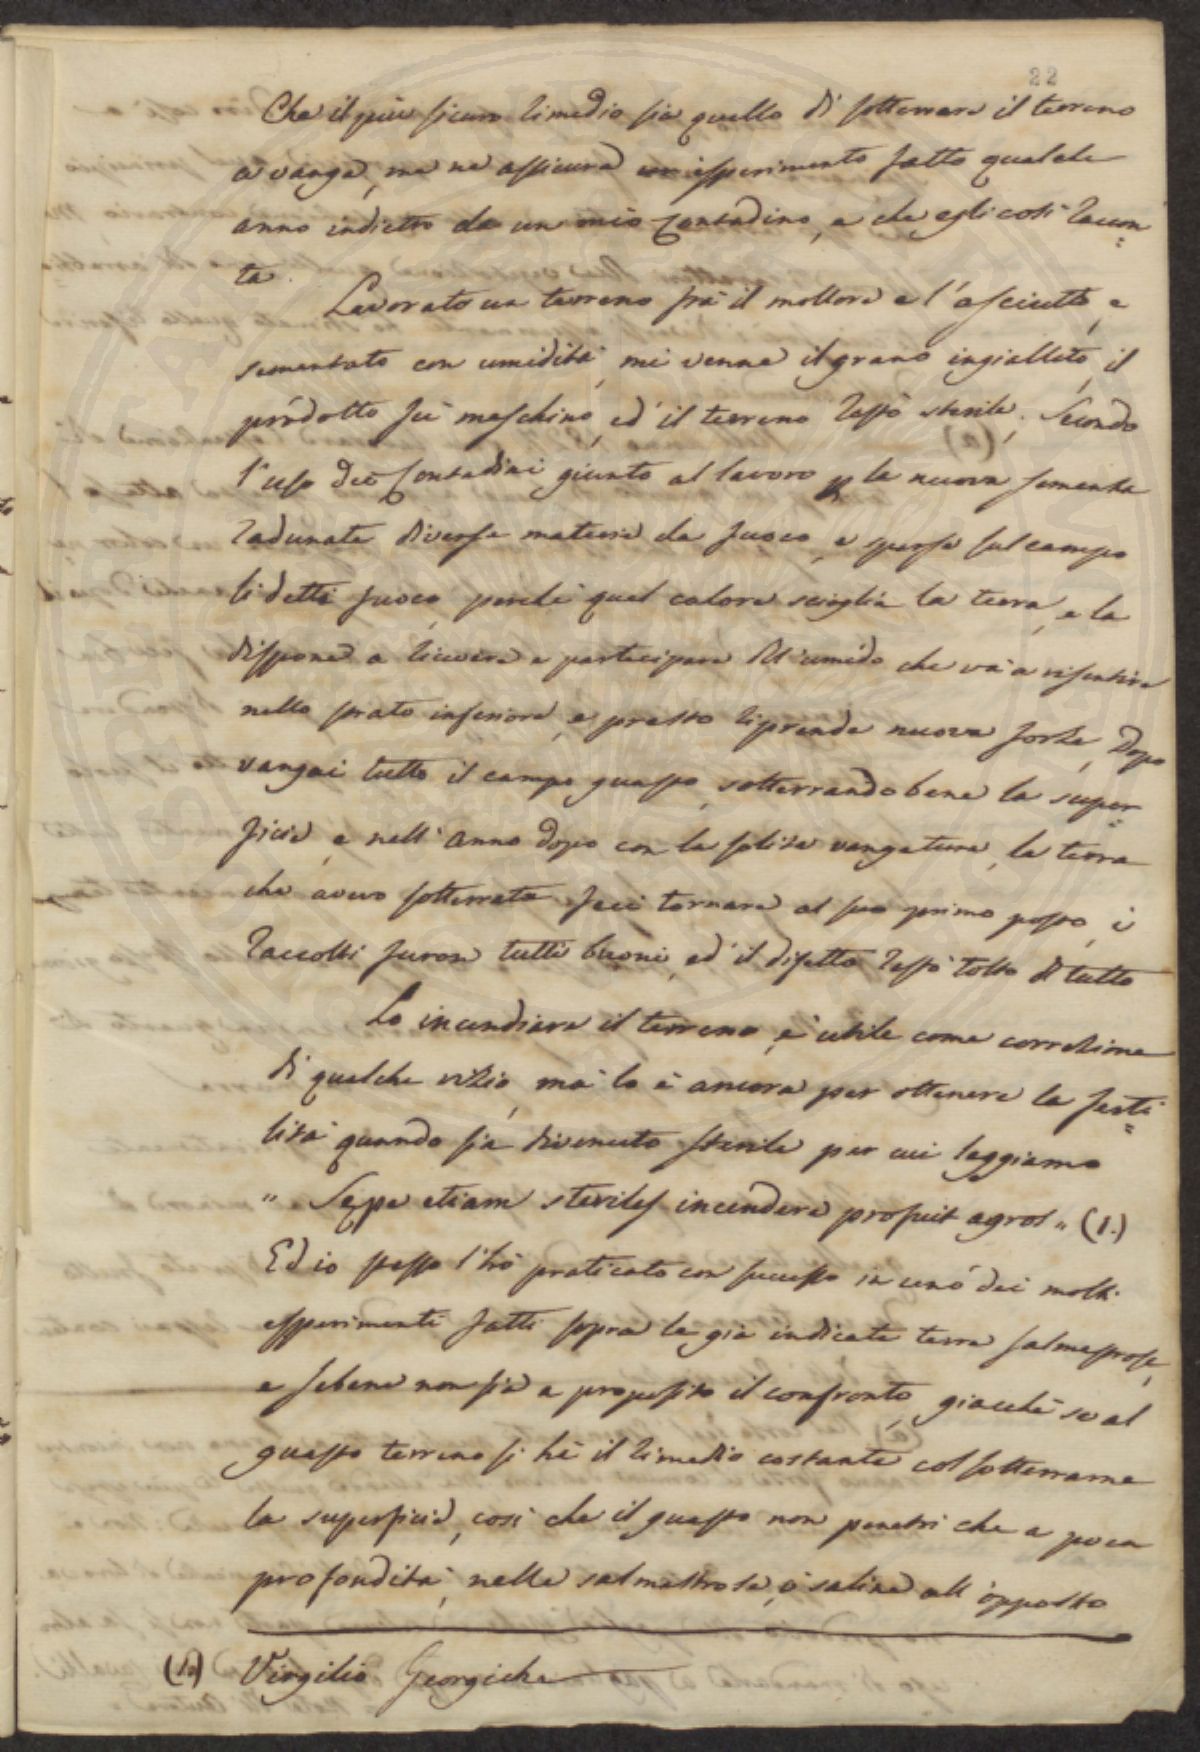 22
Che il più sicuro rimedio sia quello di sotterrare il terreno
a vanga, me ne assicura un isperimento fatto qualche
anno indietro da un mio Contadino, e che egli così raccon=
ta.
Lavorato un terreno frà il mollore e l'asciutto, e
sementato con umidità, mi venne il grano ingiallito, il
prodotto fù meschino, ed' il terreno restò sterile. Secondo
l'uso dei Contadini giunto al lavoro p la nuova sementa
radunate diverse materie da fuoco, e sparse sul campo
li detti fuoco, perchè quel calore scioglie la terra, e la
dispone a ricevere e partecipare dell'umido che và a risentire
nello strato inferiore, e presto riprende nuova forza. Dopo
vangai tutto il campo guasto, sotterrando bene la super=
ficie, e nell'anno dopo con la solita vangatura, la terra
che avevo sotterrata feci tornare al suo primo posto, i
raccolti furon tutti buoni, ed' il difetto restò tolto di tutto
Lo incendiare il terreno, è utile come correzione
di qualche vizio, mà lo è ancora per ottenere la ferti=
lità quando sia divenuto sterile per cui leggiamo
" Sepe etiam steriles incendere profuit agros " (1.)
Ed io stesso l'hò praticato con successo in uno dei molti
esperimenti fatti sopra le già indicate terre salmastrose,
e sebene non sia a proposito il confronto, giacchè se al
guasto terreno si hà il rimedio costante col sotterrarne
la superficie, così che il guasto non penetri che a poca
profondità, nelle salmastrose, ò saline all'opposto
(1.) Virgilio Georgiche